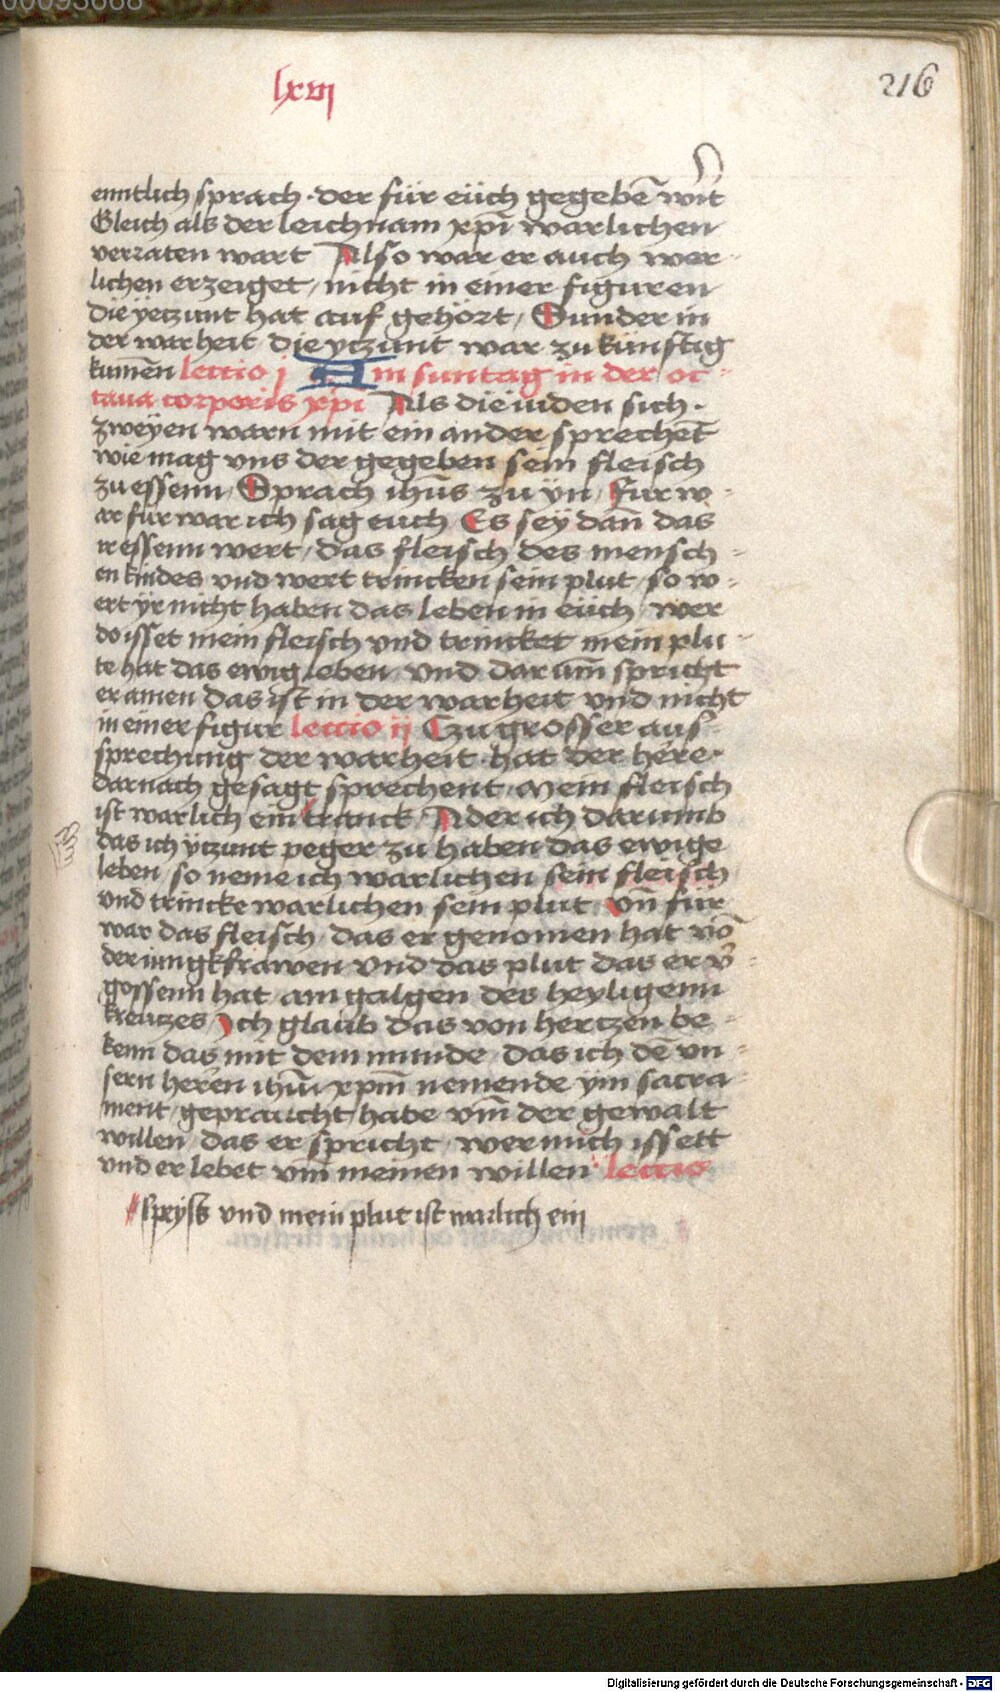 00093668
lxvj
216
enntlich sprach · der für eüch gegebē wirt
Gleich als der leichnam xp̄i warlichen
verraten wart Also war er auch wer-
lichen erzeiget / nicht in einer figuren
die yeczunt hat auf gehört / Sunder in
der warheit die yczunt war zu künftig
kumēn lectio j Am suntag in der oc-
taua corporis xp̄i Als die iuden sich ·
zweyen warn mit ein ander sprechēt
wie mag vns der gegeben sein fleisch
zu essenn / Sprach ih̄us zu yn / Fur w-
ar für war ich sag euch Es sey dan̄ das
ir essenn wert / das fleisch des mensch-
en kindes vnd wert trincken sein plut / so w-
ert yr nicht haben das leben in eüch / wer
do isset mein fleisch vnd trincket mein plu-
te hat das ewig leben / vnd darum̄ spricht
er amen das ist in der warheit vnd nicht
in einer figur lectio ij Czu grosser aus
sprechung der warheit · hat der here ·
darnach gesagt sprechent / Mein fleisch
ist warlich ein tranck / Ader ich darumb
das ich yczunt peger zu haben das ewige
leben / so neme ich warlichen sein fleisch
vnd trincke warlichen sein plut / vn̄ für
war das fleisch / das er genomen hat vō
der iungkfrawen vnd das plut das er v̄-
gossenn hat am galgen des heyligenn
kreutzes / Ich glaub das von hertzen be-
kenn das mit dem munde / das ich dē vn-
sern heren ih̄m xp̄m nemende ym sacra-
ment / gepraucht habe vm̄ der gewalt
willen / das er spricht / wer mich issett
vnd er lebet vm̄ meinen willen · lectio
speyss vnd mein plut ist warlich ein
Digitalisierung gefördert durch die Deutsche Forschungsgemeinschaft - DFG